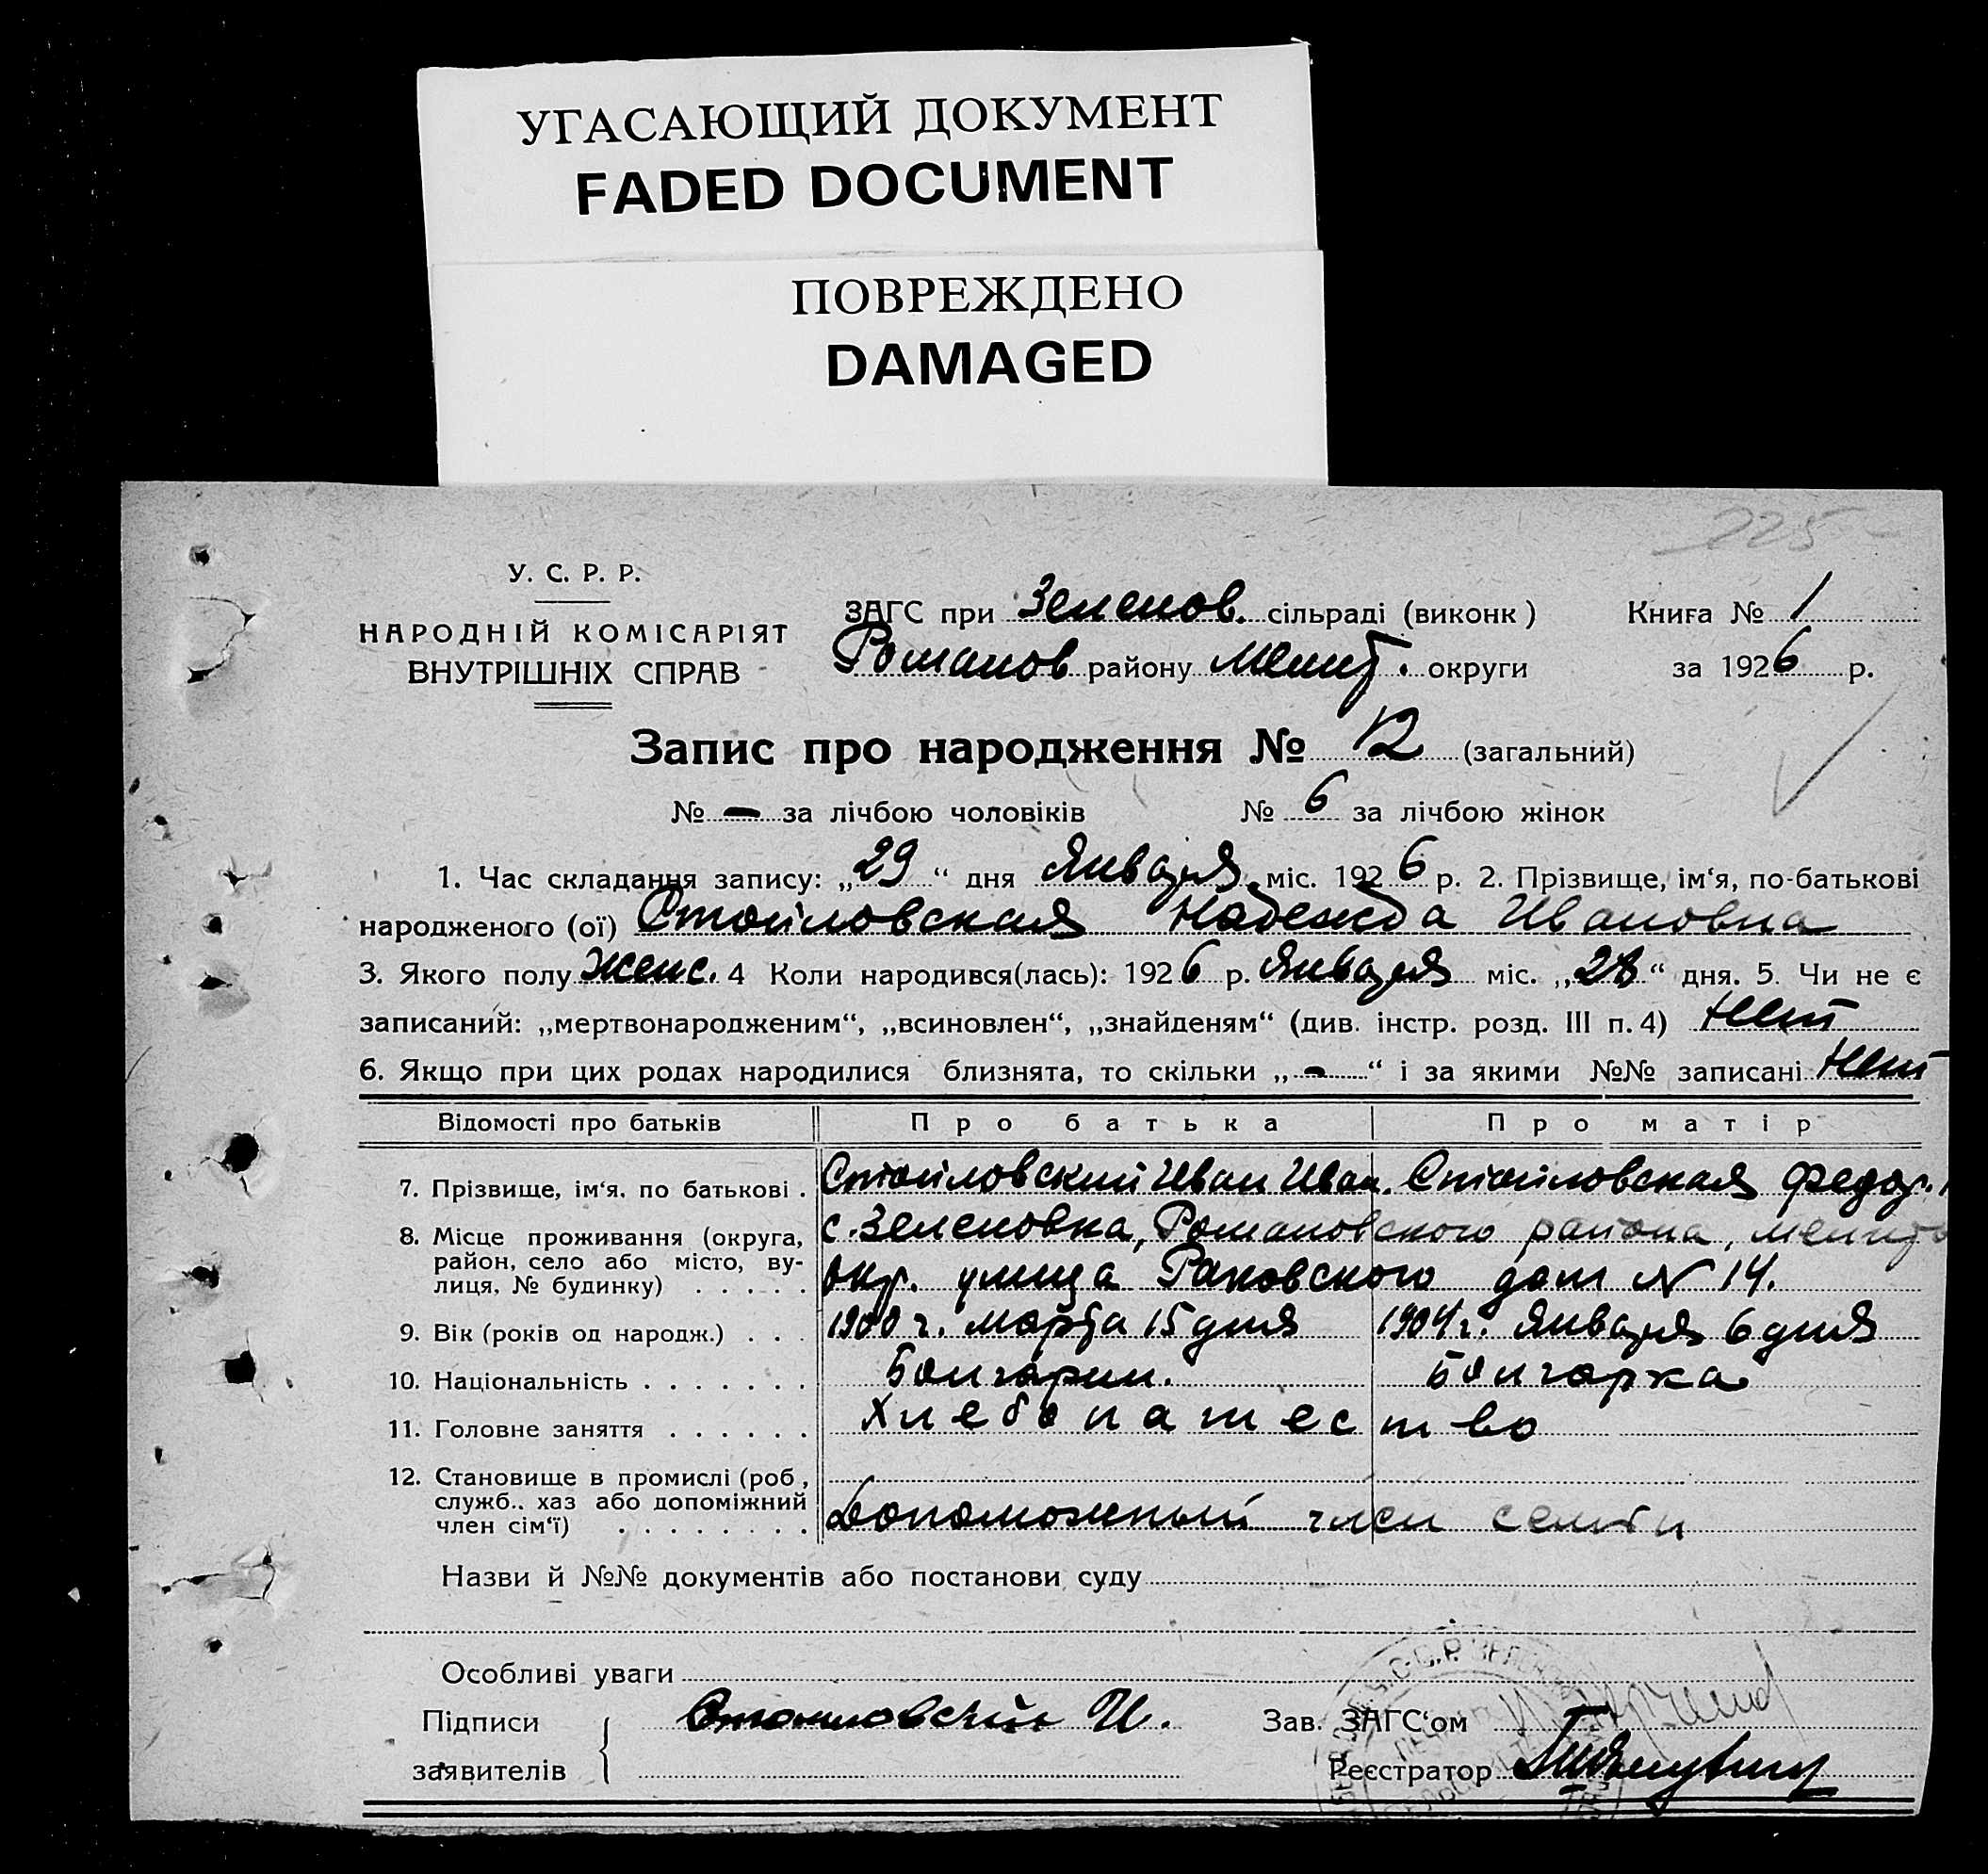 УГАСАЮЩИЙ ДОКУМЕНТ
FADED DOCUMENT
ПОВРЕЖДЕНО
DAMAGED
225
У. С. Р. Р.
НАРОДНІЙ КОМІСАРІЯТ
ВНУТРІШНІХ СПРАВ
ЗАГС при Зеленов. сільраді (виконк) Книга № 1
Романов району Мелит. округи за 1926 р.
Запис про народження № 12 (загальний)
№ - за лічбою чоловіків № 6 за лічбою жінок
1. Час складання запису: „29“ дня Января міс. 1926 р. 2. Прізвище, ім‘я, по-батькові
народженого (ої) Стойловская Надежда Ивановна
3. Якого полу Женс. 4 Коли народився(лась): 1926 р. Января міс. „28“ дня. 5. Чи не є
записаний: „мертвонародженим“, „всиновлен“, „знайденям“ (див. інстр. розд. III п. 4) Нет
6. Якщо при цих родах народилися близнята, то скільки „-“ і за якими №№ записані Нет
Відомості про батьків Про батька Про матір
7. Прізвище, ім‘я, по батькові . Стойловский Иван Иван. Стойловская Федор.
8. Місце проживання (округа, с. Зеленовка, Романовского района, Мелито
район, село або місто, ву-
лиця, № будинку) . . . . . окр. улица Раковского дом № 14.
9. Вік (років од народж.) . . . 1900 г. марта 15 дня 1904 г. Января 6 дня
10. Національність . . . . . . . Болгарин. Болгарка
11. Головне заняття . . . . . . Хлебопашество
12. Становище в промислі (роб,
служб.. хаз або допоміжний
член сім‘ї) . . . . . . . . Допоможный член семьи
Назви й №№ документів або постанови суду
Особливі уваги
Підписи Стойловский И. Зав. ЗАГС‘ом
заявителів Реєстратор